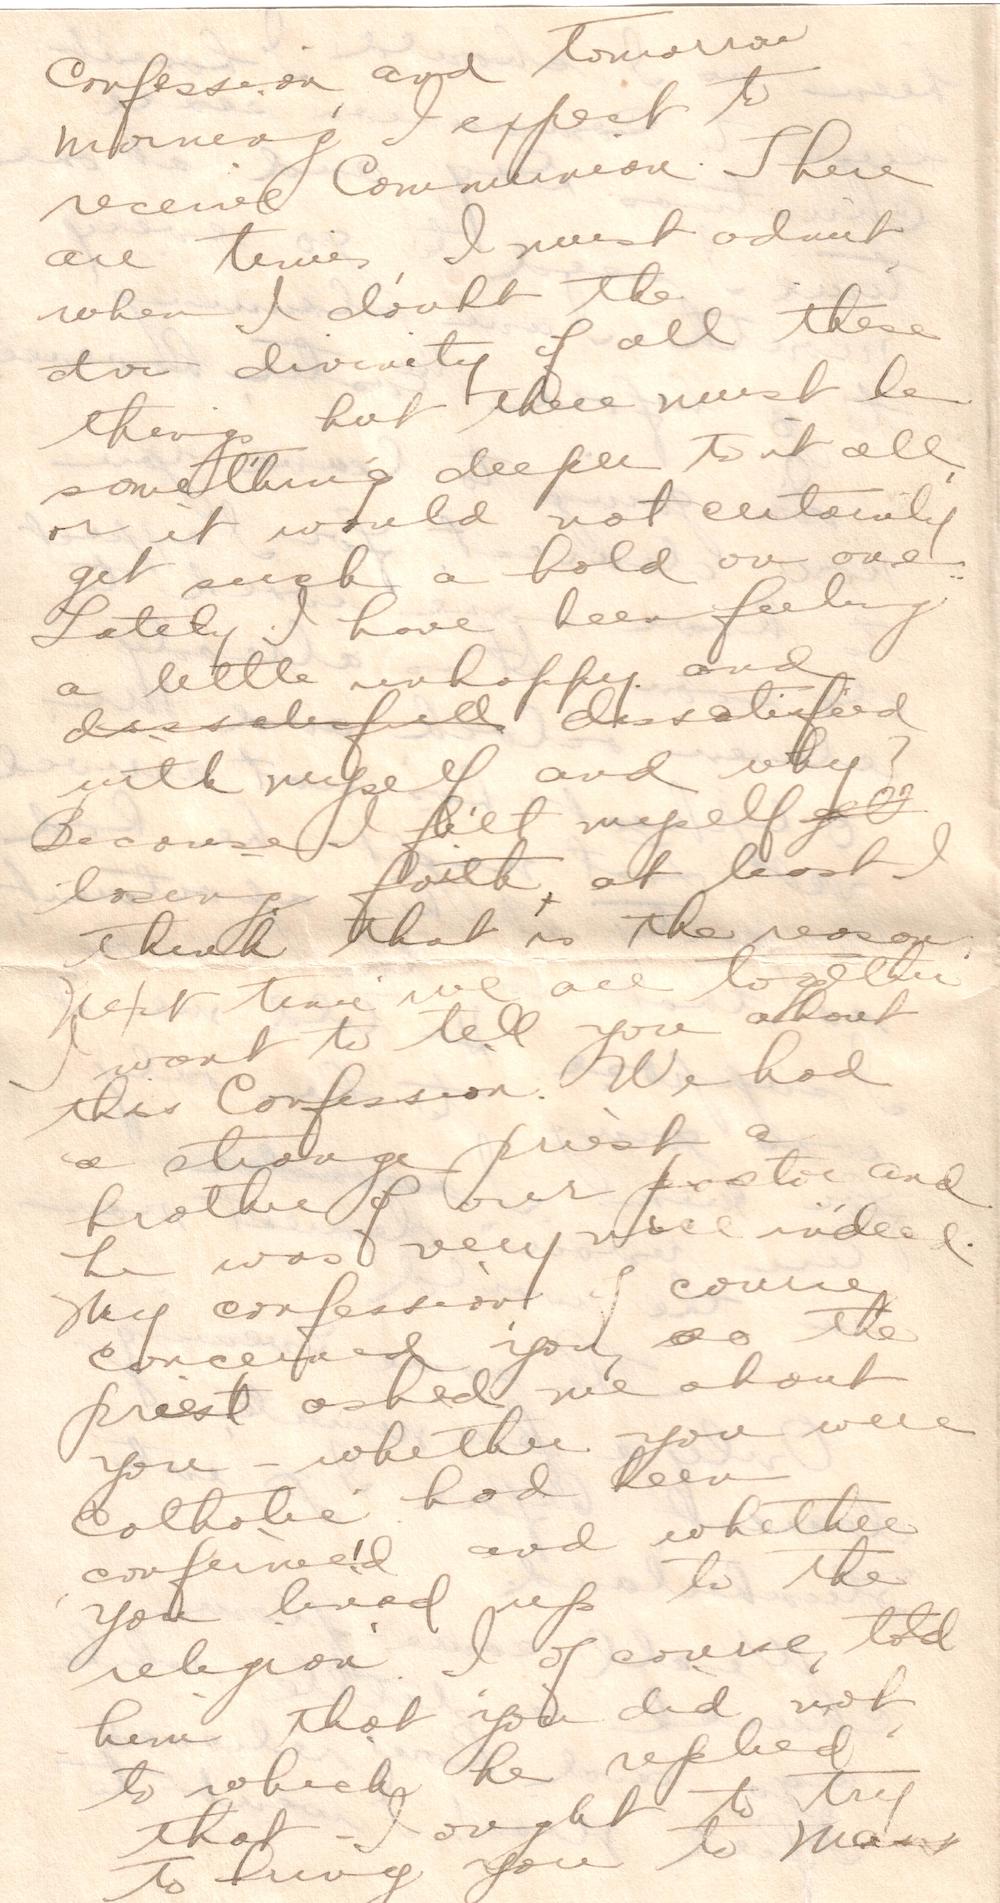 Confession, and tomorrow
morning I expect to
receive Communion. There
are times, I must admit,
when I doubt the
divinity of all these
things but there must be
something deeper to it all,
or it would not certainly
get such a hold on one.
Lately I have been feeling
a little unhappy and
dissatisfied
with myself and why?
Because I felt myself
losing faith, at least I
think that is the reason.
Next time we are together
I want to tell you about
this Confession. We had
a strange priest a
brother of our pastor and
he was very nice indeed.
My confession of course,
concerned you, so the
priest asked me about
you - whether you were
Catholic had been
confirmed and whether
you lived up to the
religion. I of course, told
him that you did not,
to which he replied
that - I ought to try
to bring you to Mass